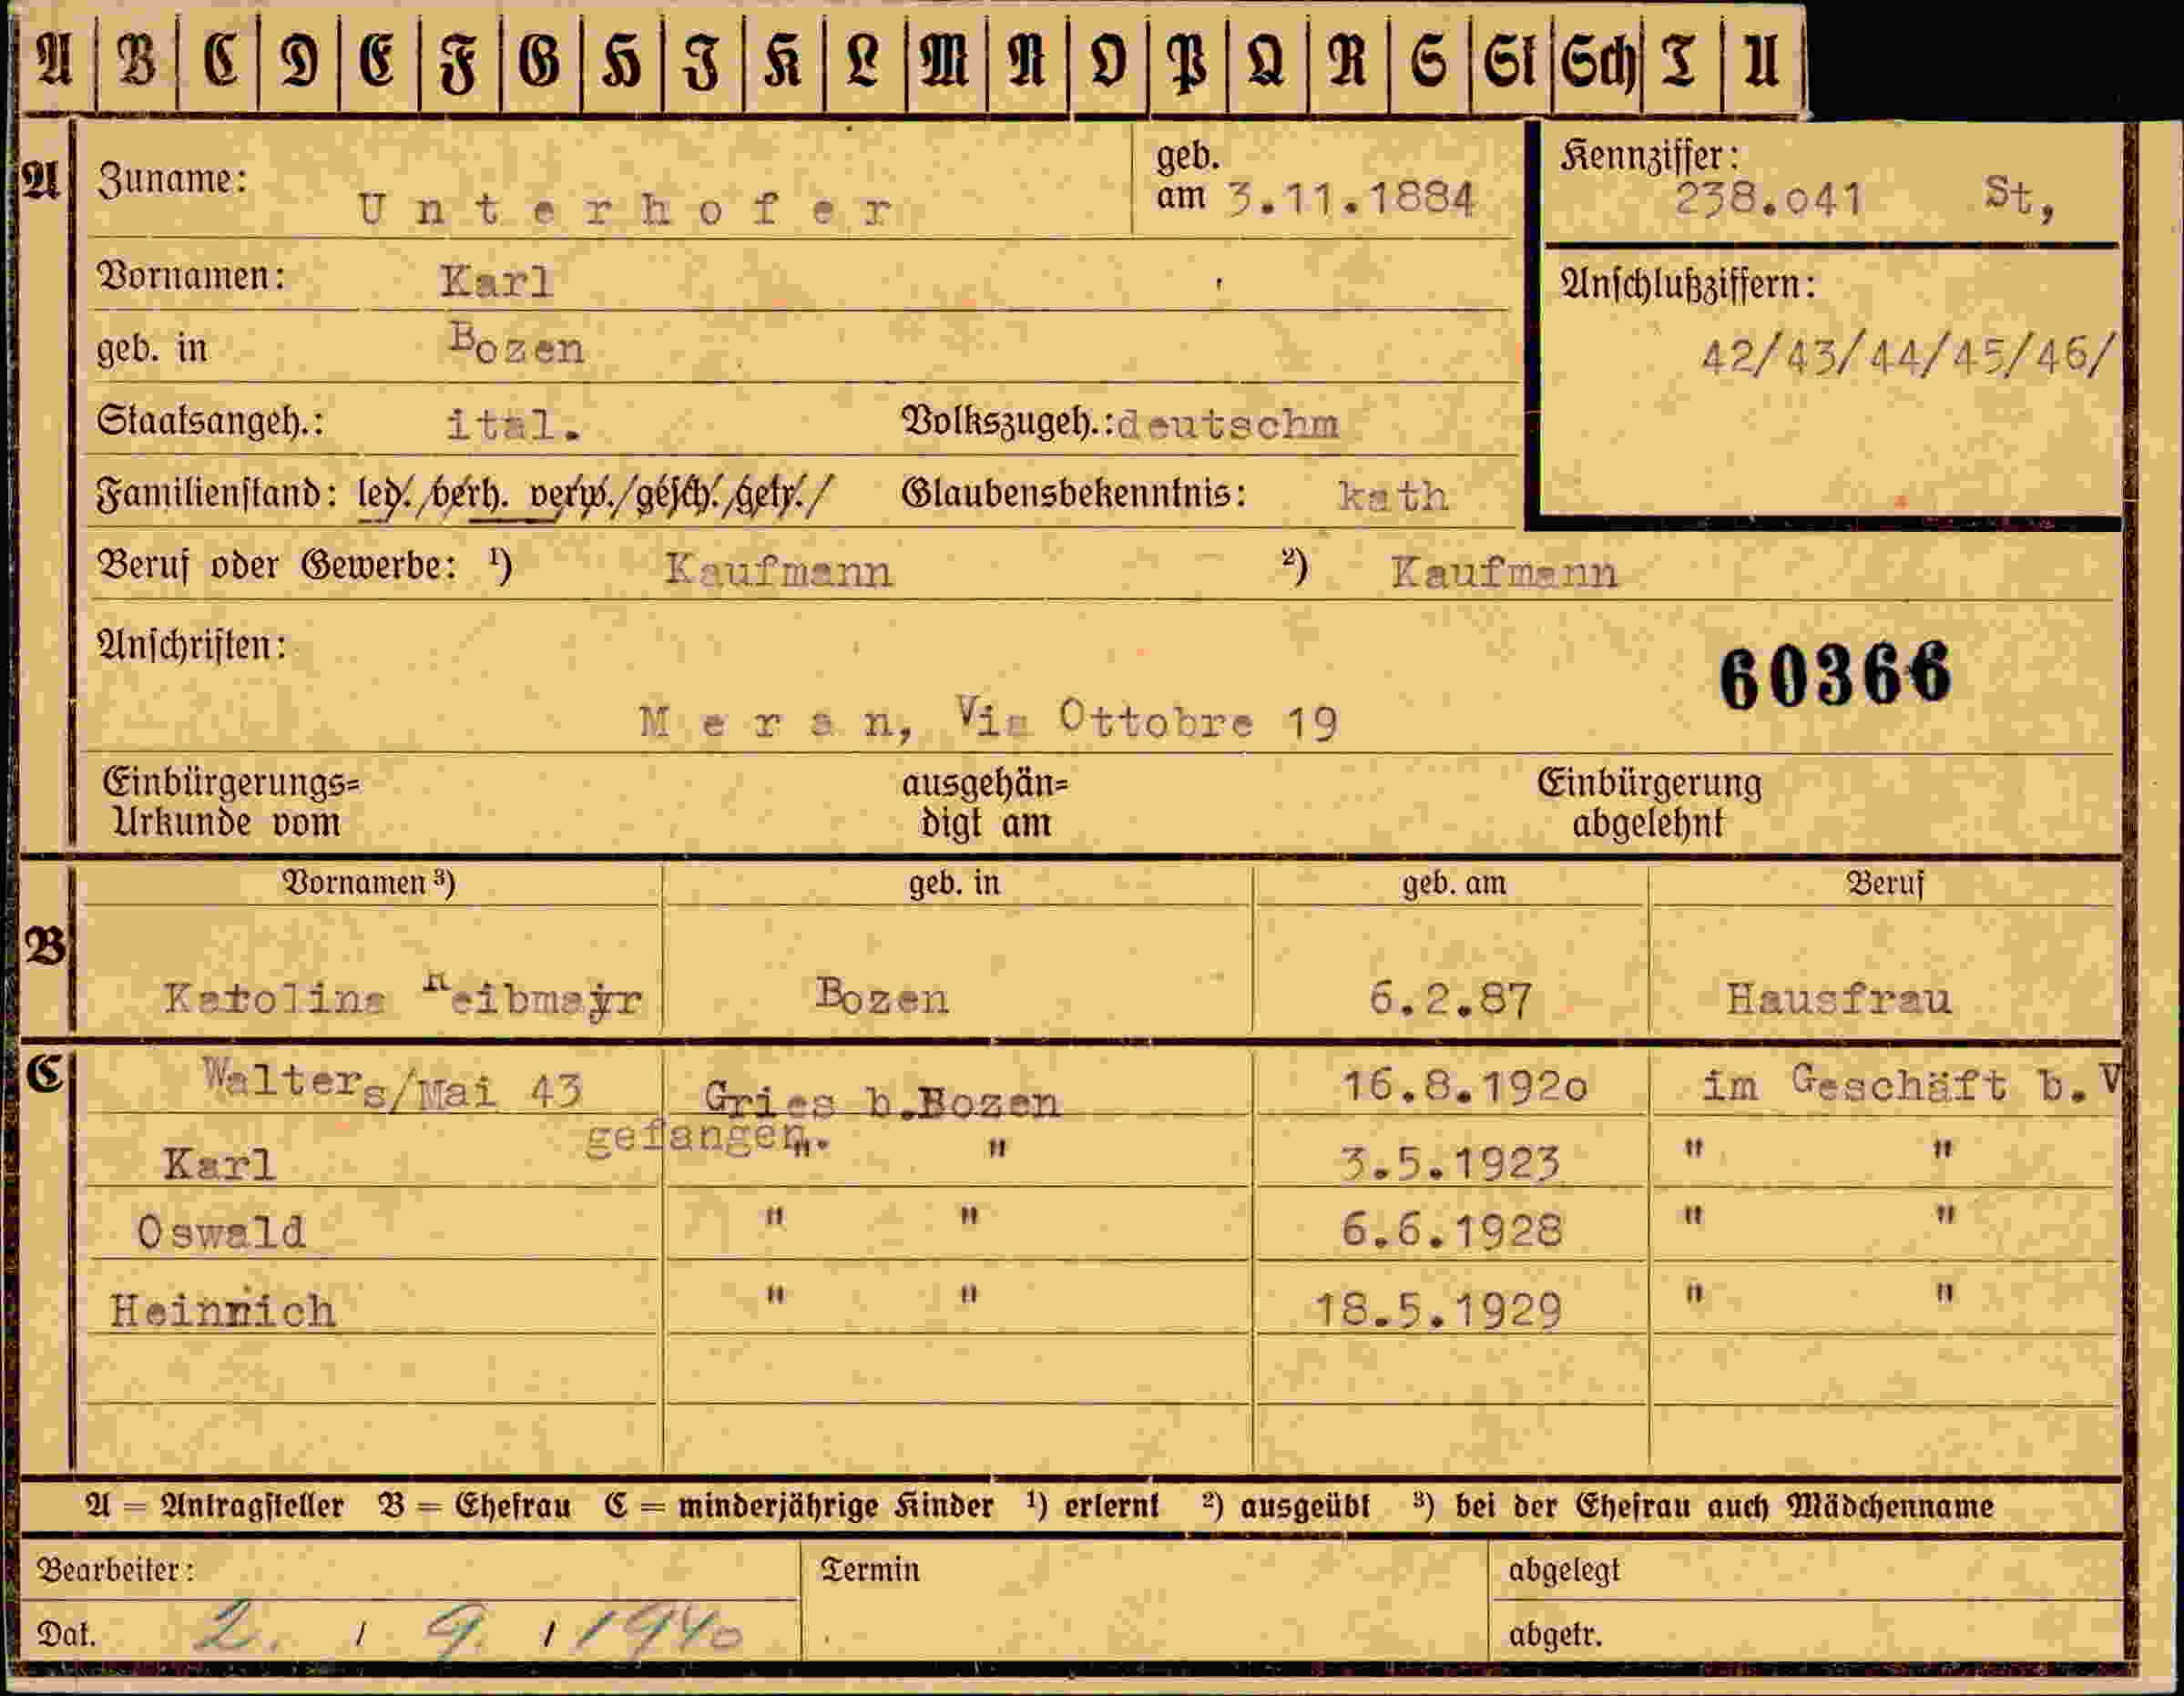 A B C D E F G H I K L M N O P Q R S St Sch T U
A Zuname: Unterhofer geb. am 3.11.1884 Kennziffer: 238.041 St,
Vornamen: Karl
Anschlußziffern:
geb. in Bozen 42/43/44/45/46/
Staatsangeh.: ital. Volkszugeh.: deutschm
Familienstand: led./verh. verw./gesch./getr./ Glaubensbekenntnis: kath
Beruf oder Gewerbe: ¹) Kaufmann ²) Kaufmann
Anschriften:
60366
Meran, Via Ottobre 19
Einbürgerungs= ausgehän= Einbürgerung
Urkunde vom digt am abgelehnt
Vornamen ³) geb. in geb. am Beruf
B
Karolina Reibmayr Bozen 6.2.87 Hausfrau
C Walter s/Mai 43 Gries b.Bozen 16.8.1920 im Geschäft b. V
gefangen.
Karl " " 3.5.1923 " "
Oswald " " 6.6.1928 " "
Heinrich " " 18.5.1929 " "
A = Antragsteller B = Ehefrau C = minderjährige Kinder ¹) erlernt ²) ausgeübt ³) bei der Ehefrau auch Mädchenname
Bearbeiter: Termin abgelegt
Dat. 2. / 9. / 1940 abgetr.